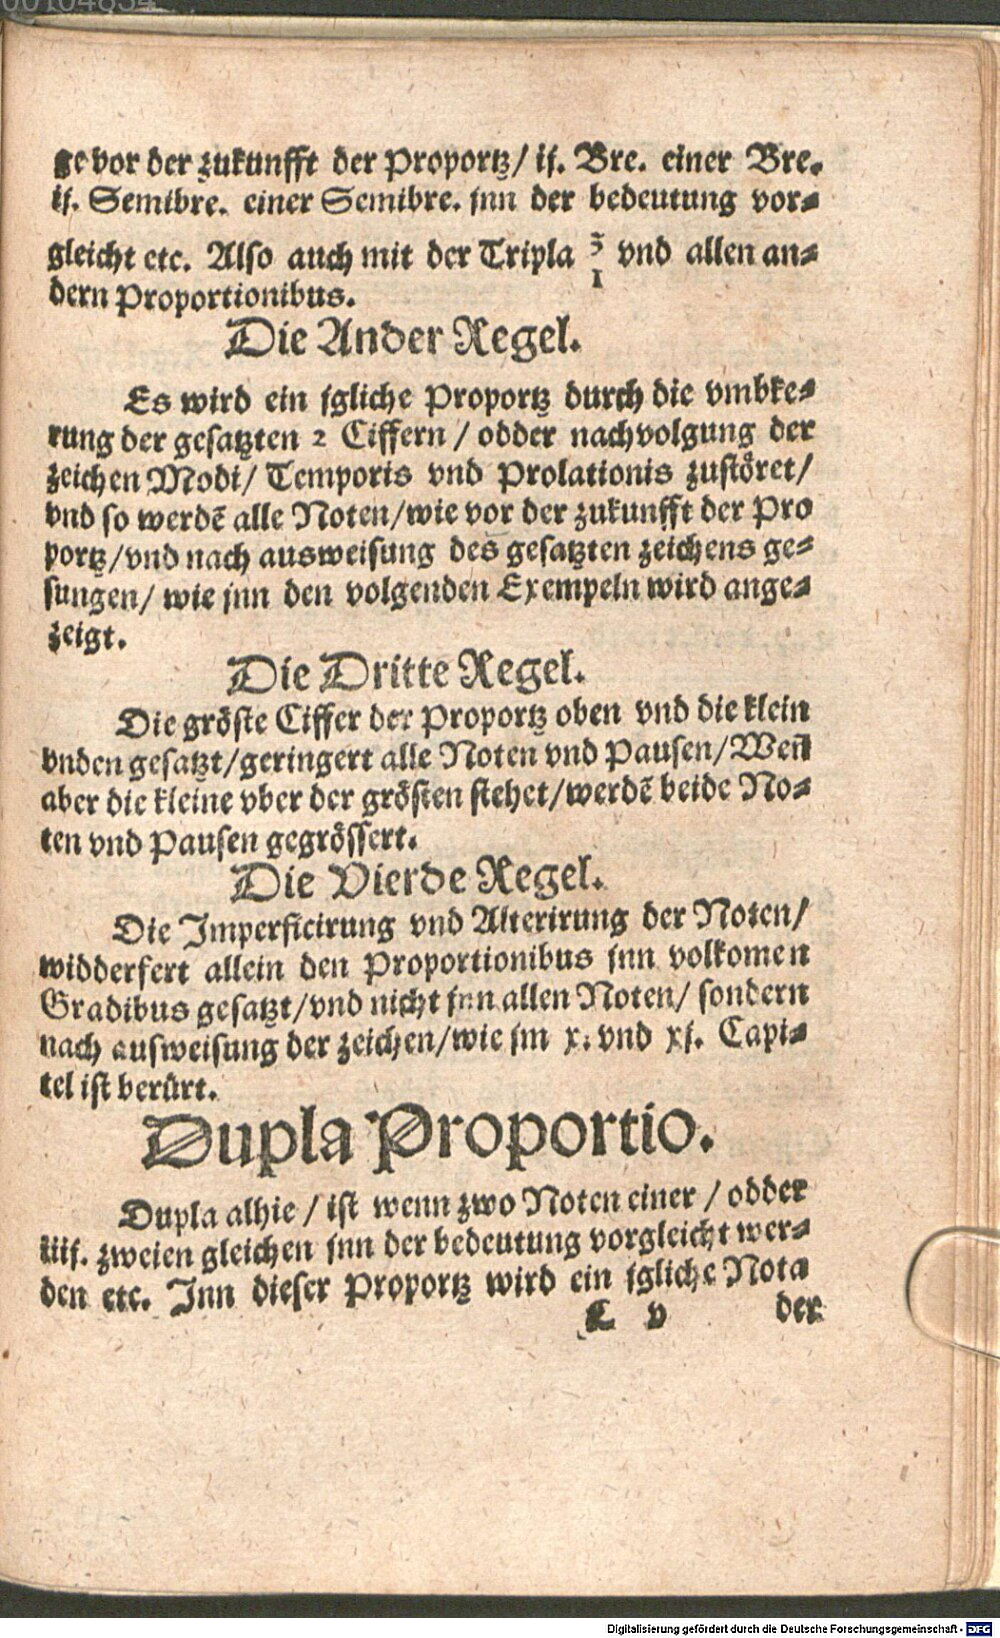 00104834
ge vor der zukunfft der Proportz/ ij. Bre. einer Bre.
ij. Semibre. einer Semibre. jnn der bedeutung vor⸗
gleicht etc. Also auch mit der Tripla 3/1 vnd allen an⸗
dern Proportionibus.
Die Ander Regel.
Es wird ein jgliche Proportz durch die vmbke⸗
rung der gesatzten 2 Ciffern / odder nachvolgung der
zeichen Modi/ Temporis vnd Prolationis zustöret/
vnd so werdē alle Noten/wie vor der zukunfft der Pro
portz/vnd nach ausweisung des gesatzten zeichens ge⸗
sungen/ wie jnn den volgenden Exempeln wird ange⸗
zeigt.
Die Dritte Regel.
Die gröste Ciffer der Proportz oben vnd die klein
vnden gesatzt/geringert alle Noten vnd Pausen/Weñ
aber die kleine vber der grösten stehet/werdē beide No⸗
ten vnd Pausen gegrössert.
Die Vierde Regel.
Die Imperficirung vnd Alterirung der Noten/
widderfert allein den Proportionibus jnn volkomen
Gradibus gesatzt/vnd nicht jnn allen Noten/ sondern
nach ausweisung der zeichen/wie jm x. vnd xj. Capi⸗
tel ist berürt.
Dupla Proportio.
Dupla alhie / ist wenn zwo Noten einer / odder
iiij. zweien gleichen jnn der bedeutung vorgleicht wer⸗
den etc. Inn dieser Proportz wird ein jgliche Nota
E v der
Digitalisierung gefördert durch die Deutsche Forschungsgemeinschaft - DFG